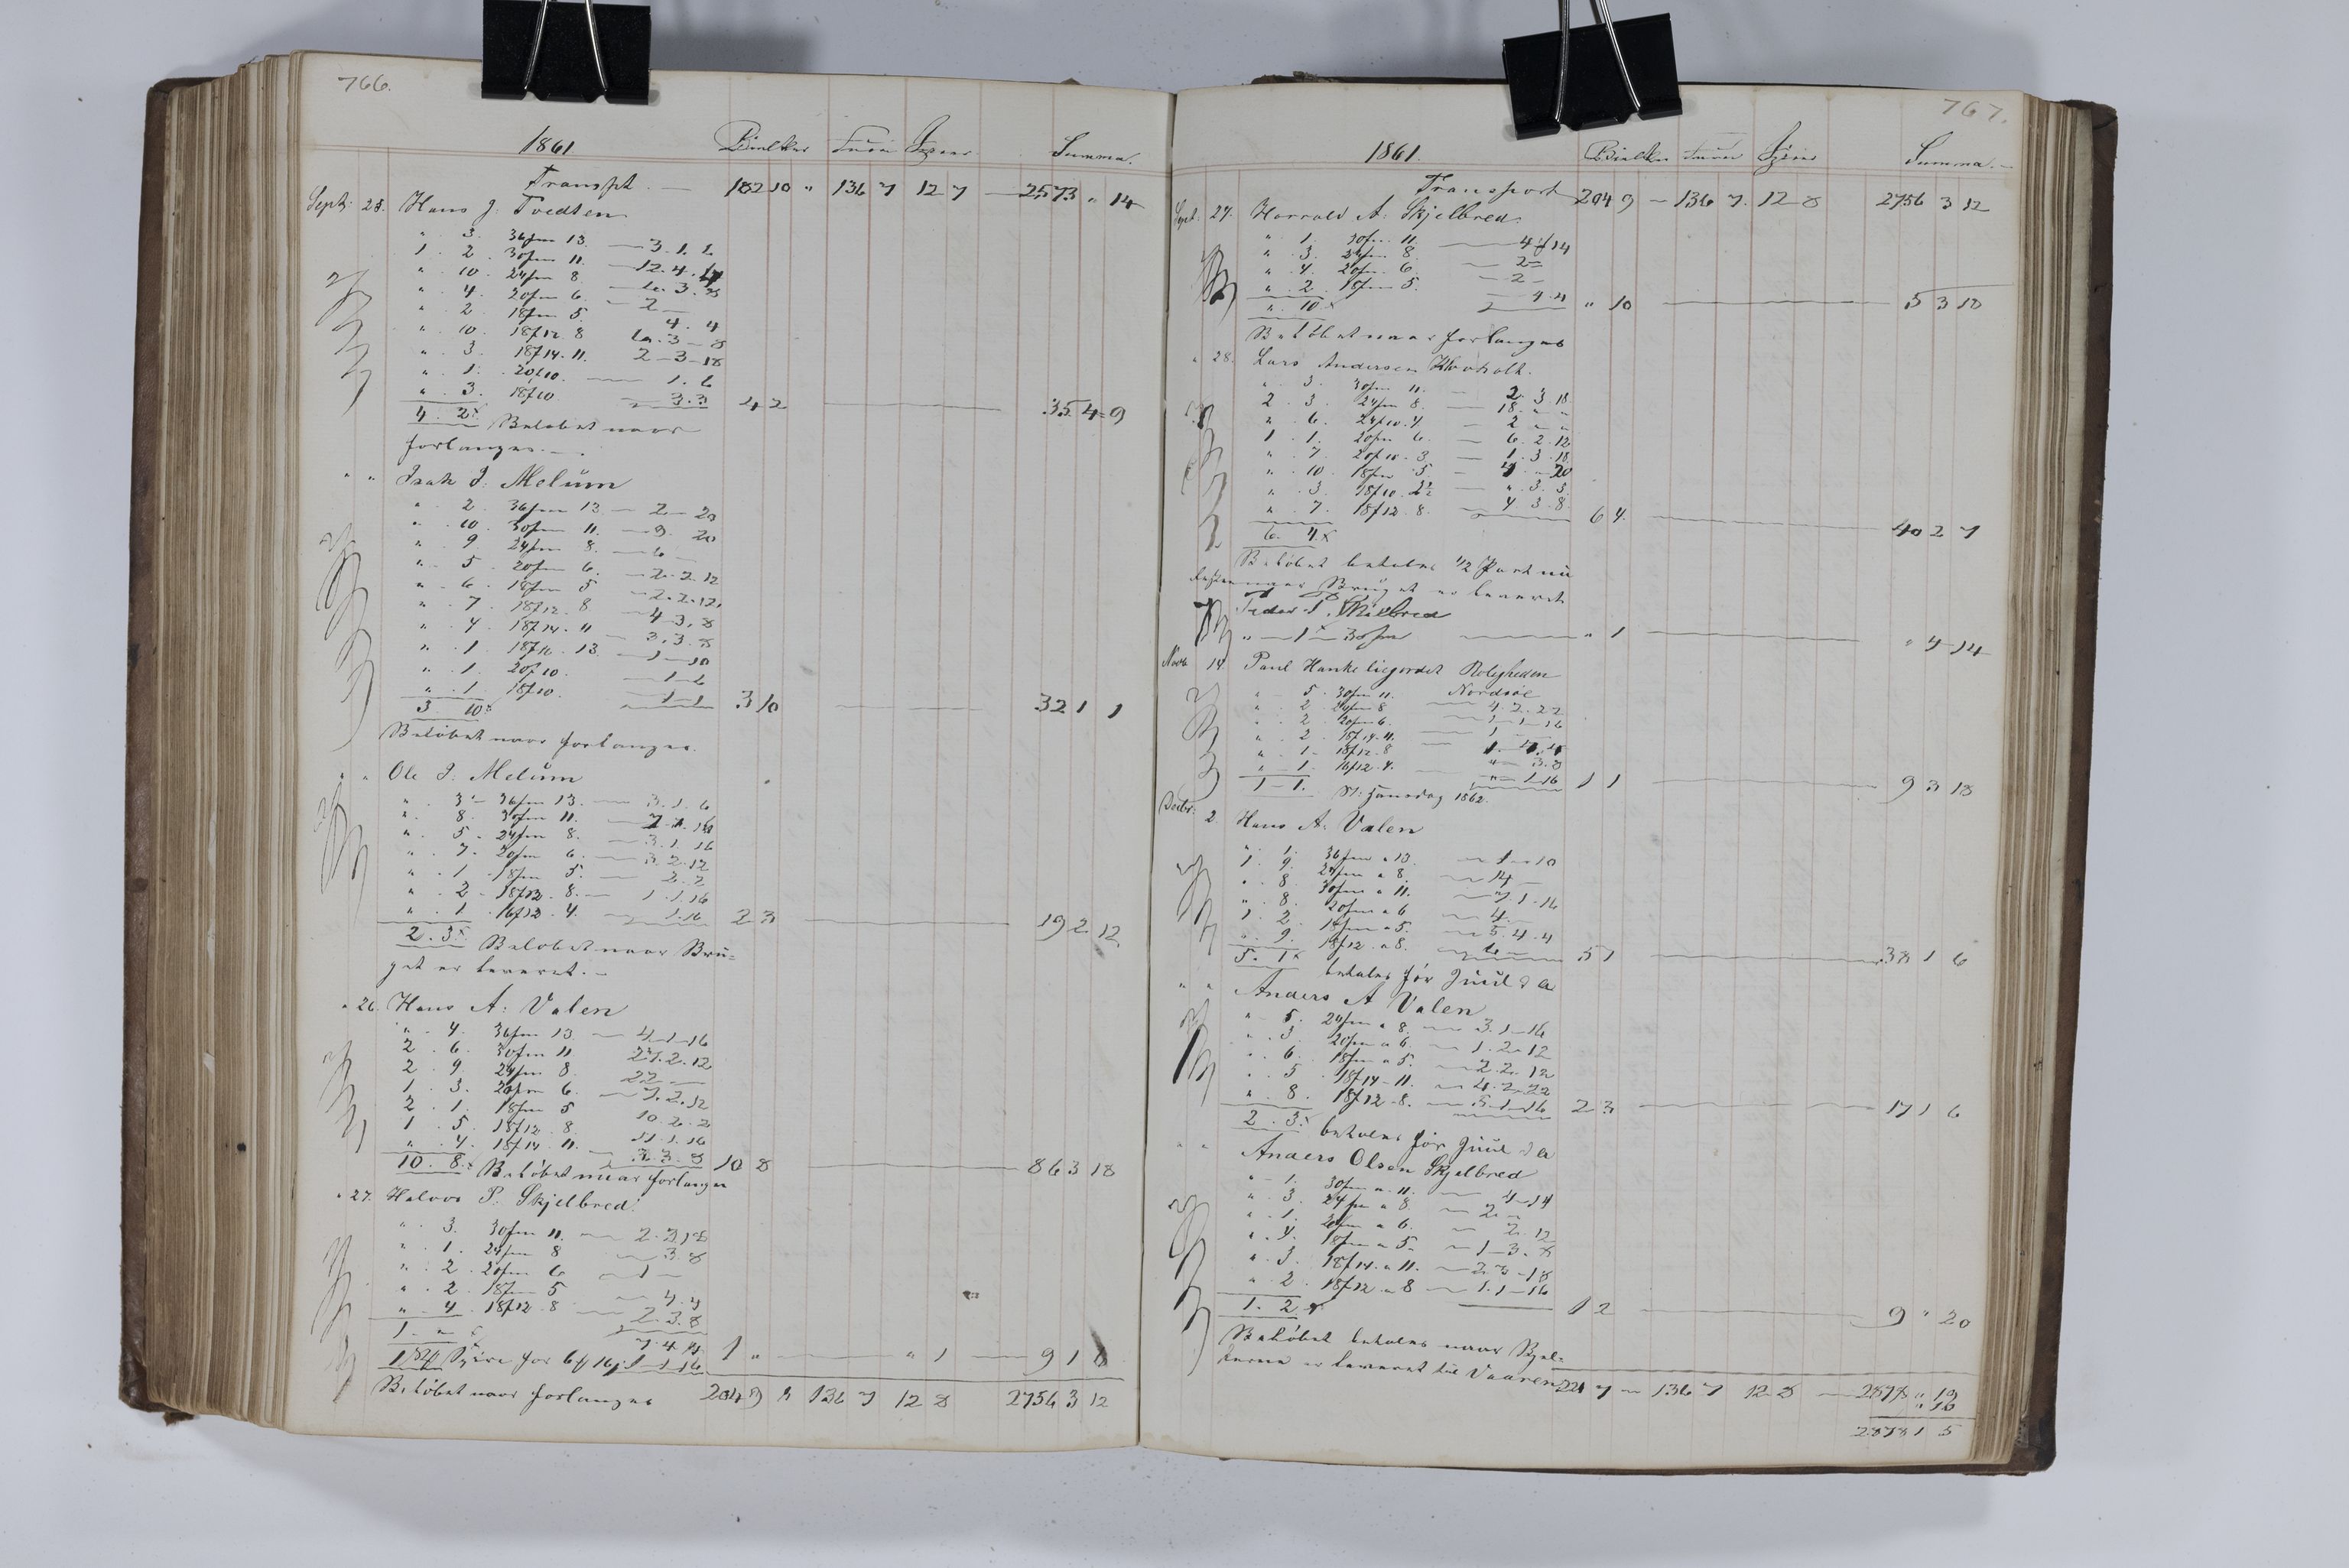 766.
1861 Bielker Furu Tylver Summa.
Transpt. 182 10 " 136 7 12 7 2573 " 14
Sept: 25. Hans J: Tvedten
" 3. 36fm 13. 3.1.6
1 2. 30fm 11. 12.4.14
" 10. 24fm 8 6.3.8
" 4. 20fm 6. 2
" 2. 18fm 5. 4.4
" 10. 18f12 8 6.3 8
" 3. 18f14. 11. 2 3 18
" 1. 20f10. 1.6
" 3. 18f10 3.3
4. 2x 4 2 35 4 9
Beløbet naar
forlanges.
" " Isak J: Melüm
" 2. 36fm 13 2 20
" 10. 30fm 11. 9. 20
" 9. 24fm 8. 6
" 5. 20fm 6. 2.2.12
" 6. 18fm 5 2.2.12.
" 7. 18f12. 8 4 3.8
" 4. 18f14. 11 3.3.8
" 1. 18f16. 13. 1 10
" 1. 20f10. 1 6
" 1 18f10. 1 1
3 10x 3 10 32 1 1
Beløbet naar forlanges.
" " Ole J: Melüm
" 3 36fm 13. 3.1.6
" 8. 30fm 11. 7.1.16
" 5. 24fm 8. 3.1.16
" 7. 20fm 6. 3.2.12
" 1. 18fm 5. 2.2
" 2. 18f12. 8. 1.1.16
" 1. 16f12. 4. 1.16
2. 3x Beløbet naar Brü= 2 3 19 2 12
get er leveret.
" 26. Hans A: Valen
" 4. 36fm 13 4 1 16
2. 6. 30fm 11 27.2.12
2. 9. 24fm 8. 22
1. 3. 20fm 6. 7.2.12
2. 1. 18fm 5 10.2.2
1. 5. 18f12. 8. 11.1.16
" 4. 18f14. 11. 3.3.8
10. 8x Beløbet naar forlanges 10 8 86 3 18
" 27. Halvor P. Skjelbred.
" 3. 30fm 11. 2.3 18
" 1. 24fm 8 3.8
" 2. 20fm 6 1
" 2. 18fm 5 4.4
" 4. 18f12. 8 2.3.8
1 " x 7.4.14
for 6f 16 1 1 16 1 " " 1 9 1 6
Beløbet naar forlanges 204 9 " 136 7 12 8 2756 3 12
767.
1861. Bielker Furu Tylver Summa.
Transport 204 9 136 7. 12 8 2756 3 12
Sept. 27. Harrald A: Skjelbred.
" 1. 30fm 11. 4 14
" 3. 24fm 8. 2
" 4. 20fm 6. 2
" 2. 18fm 5. 4.4
" 10x " 10 5 3 18
Beløbet naar forlanges
" 28. Lars Andersen
" 3. 30fm 11. 2. 3 18
2. 3. 24fm 8. 18. " "
" 6. 24f10. 4 2 " "
1. 1. 20fm 6. 6.2.12
" 7. 20f10. 3. 1.3.18
" 10. 18fm 5. 4 " 20
" 3. 18f10. 2½ " 3.3.
" 7. 18f12. 8. 4 3 8.
6. 4x 6 4. 40 2 7
Beløbet betales 1/2 Part nu
Resten naar Brüget er leveret
Peder P. Skilbred
" 1x 30fm " 1 " 4 14
Novb 14 Paul Hanke liegordet Roligheden
Nordsøe
" 5. 30fm 11. 4.2.22
" 2. 24fm 8 1 1 16
" 2. 20fm 6. 1
" 2. 18f14. 11.
" 1 18f12. 8 " 3.8
" 1. 16f12. 4. " 1 16
1 1. St: Hansdag 1862. 1 1 9 3 18
Decbr: 2. Hans A: Valen
" 1. 36fm a 13. 1 10
1. 9. 24fm a 8. 14
" 8. 30fm a 11. 7 1 16
" 8. 20fm a 6 4.
1. 2. 18fm a 5. 5.4.4
" 9. 18f12. a 8. 6
5. 1x betales før Juul d A 5 1 38 1 6
" " Anders A Valen
" 5. 24fm a 8. 3.1 16
" 3. 20fm a 6. 1.2 12
" 6. 18fm a 5. 2.2 12
" 5. 18f14 11. 4.2.22
" 8. 18f12 8. 5 1 16
2. 3x betales før Juul d A 2 3 17 1 6
" " Anders Olsen Skjelbred
" 1. 30fm a 11. 4 14
" 3. 24fm a 8. 2
" 1. 20fm a 6. 2.12
" 4. 18fm a 5. 1 3.8
" 3. 18f14. a 11. 2 3 18
" 2. 18f12 a 8 1.1 16
1. 2x 1 2 9 " 20
Beløbet betales naar Bjel-
kerne er leveret til Vaaren 221 7 136 7 12 8 2878 " 19
" 10
2878 1 5